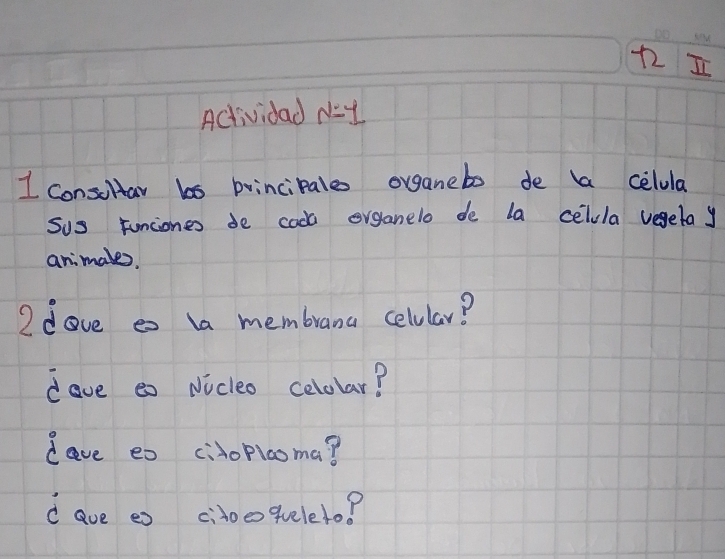 T2 II
Actividad N=1
1 Consultar los principales organelos de la célula
Sus Funciones de cada organelo de la célula vegeta y
animales.
2 ¿Que es la membrana celular?
¿Que es Núcleo celular?
¿Que es citoplasma?
¿Que es citoesqueleto?